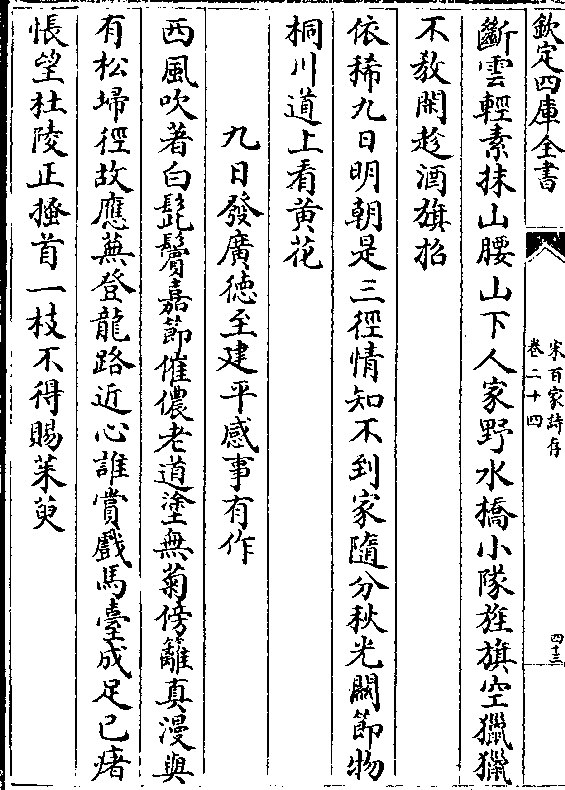 欽定四庫全書
宋百家詩存
卷二十四
四十三
斷雲輕素抹山腰山下人家野水橋小隊旌旗空獵獵
不教閑趁酒旗招
依稀九日明朝是三徑情知不到家隨分秋光闕節物
桐川道上看黄花
九日發廣徳至建平感事有作
西風吹著白髭鬢嘉節催儂老道塗無菊傍籬真漫與
有松埽徑故應蕪登龍路近心誰賞戲馬臺成足已瘏
悵望杜陵正搔首一枝不得賜茱萸